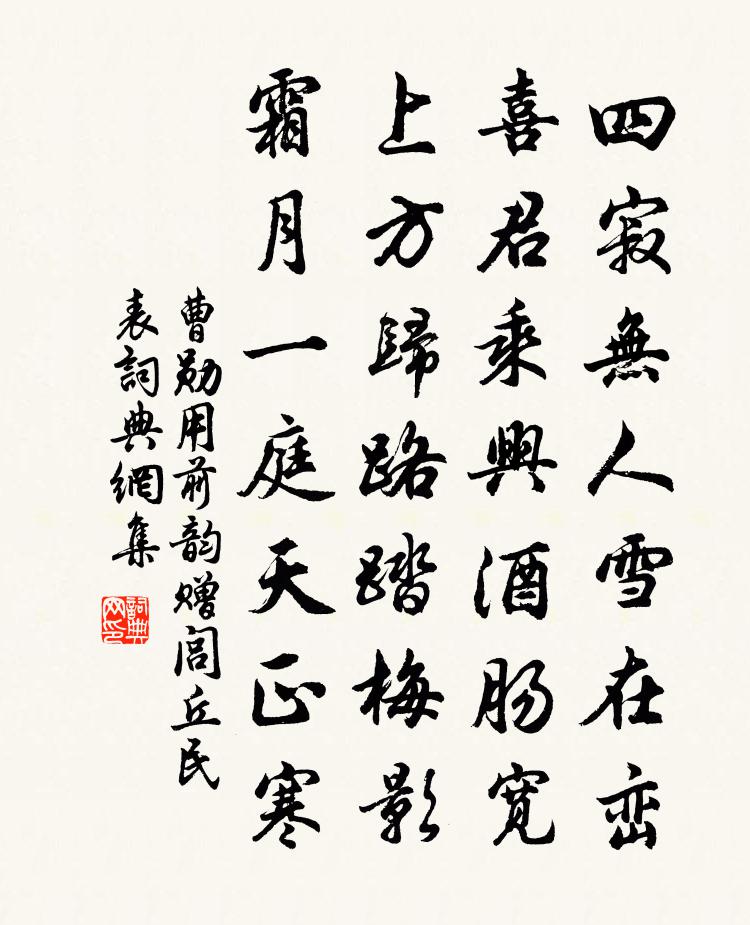 四寂無人雪在峦
喜君乘興酒肠寛
上方歸路踏梅影
霜月一庭天正寒
曹勋用前韵赠闾丘民
表詞典網集
詞典网印